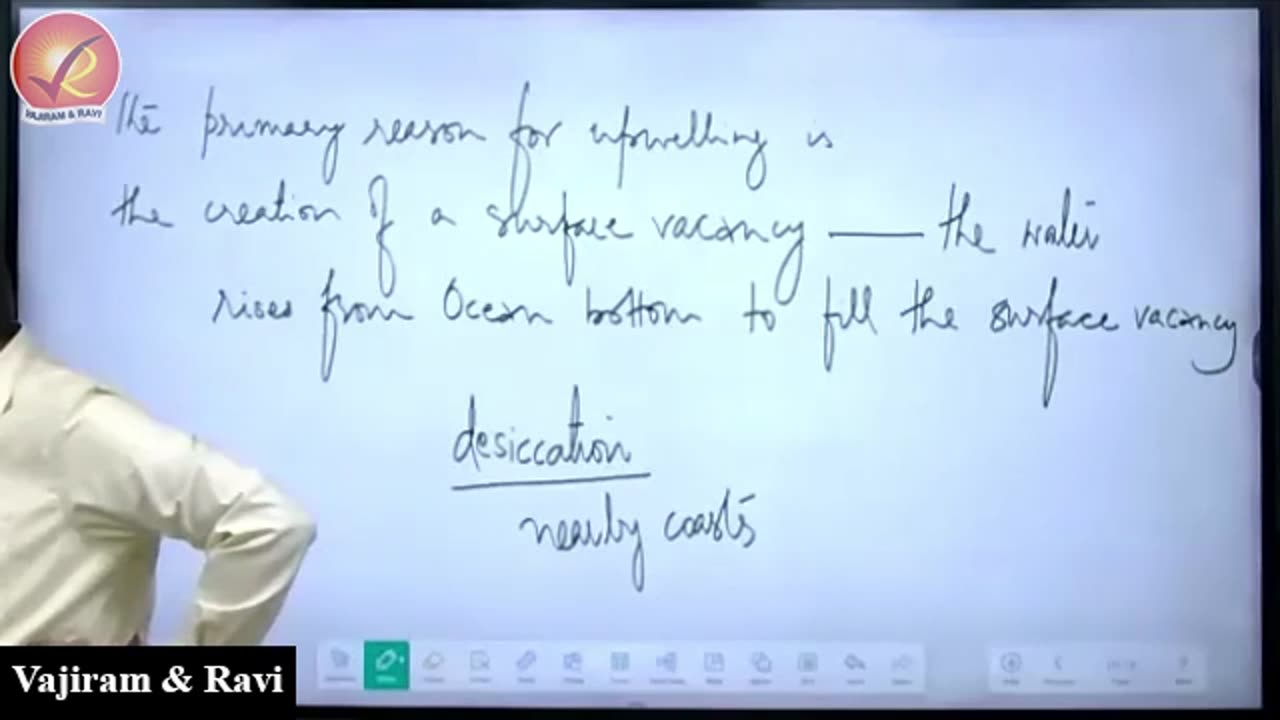 VAJIRAM & RAVI
The primary reason for upwelling is
the creation of a surface vacancy — the water
rises from Ocean bottom to fill the surface vacancy
desiccation
nearby coasts
Vajiram & Ravi